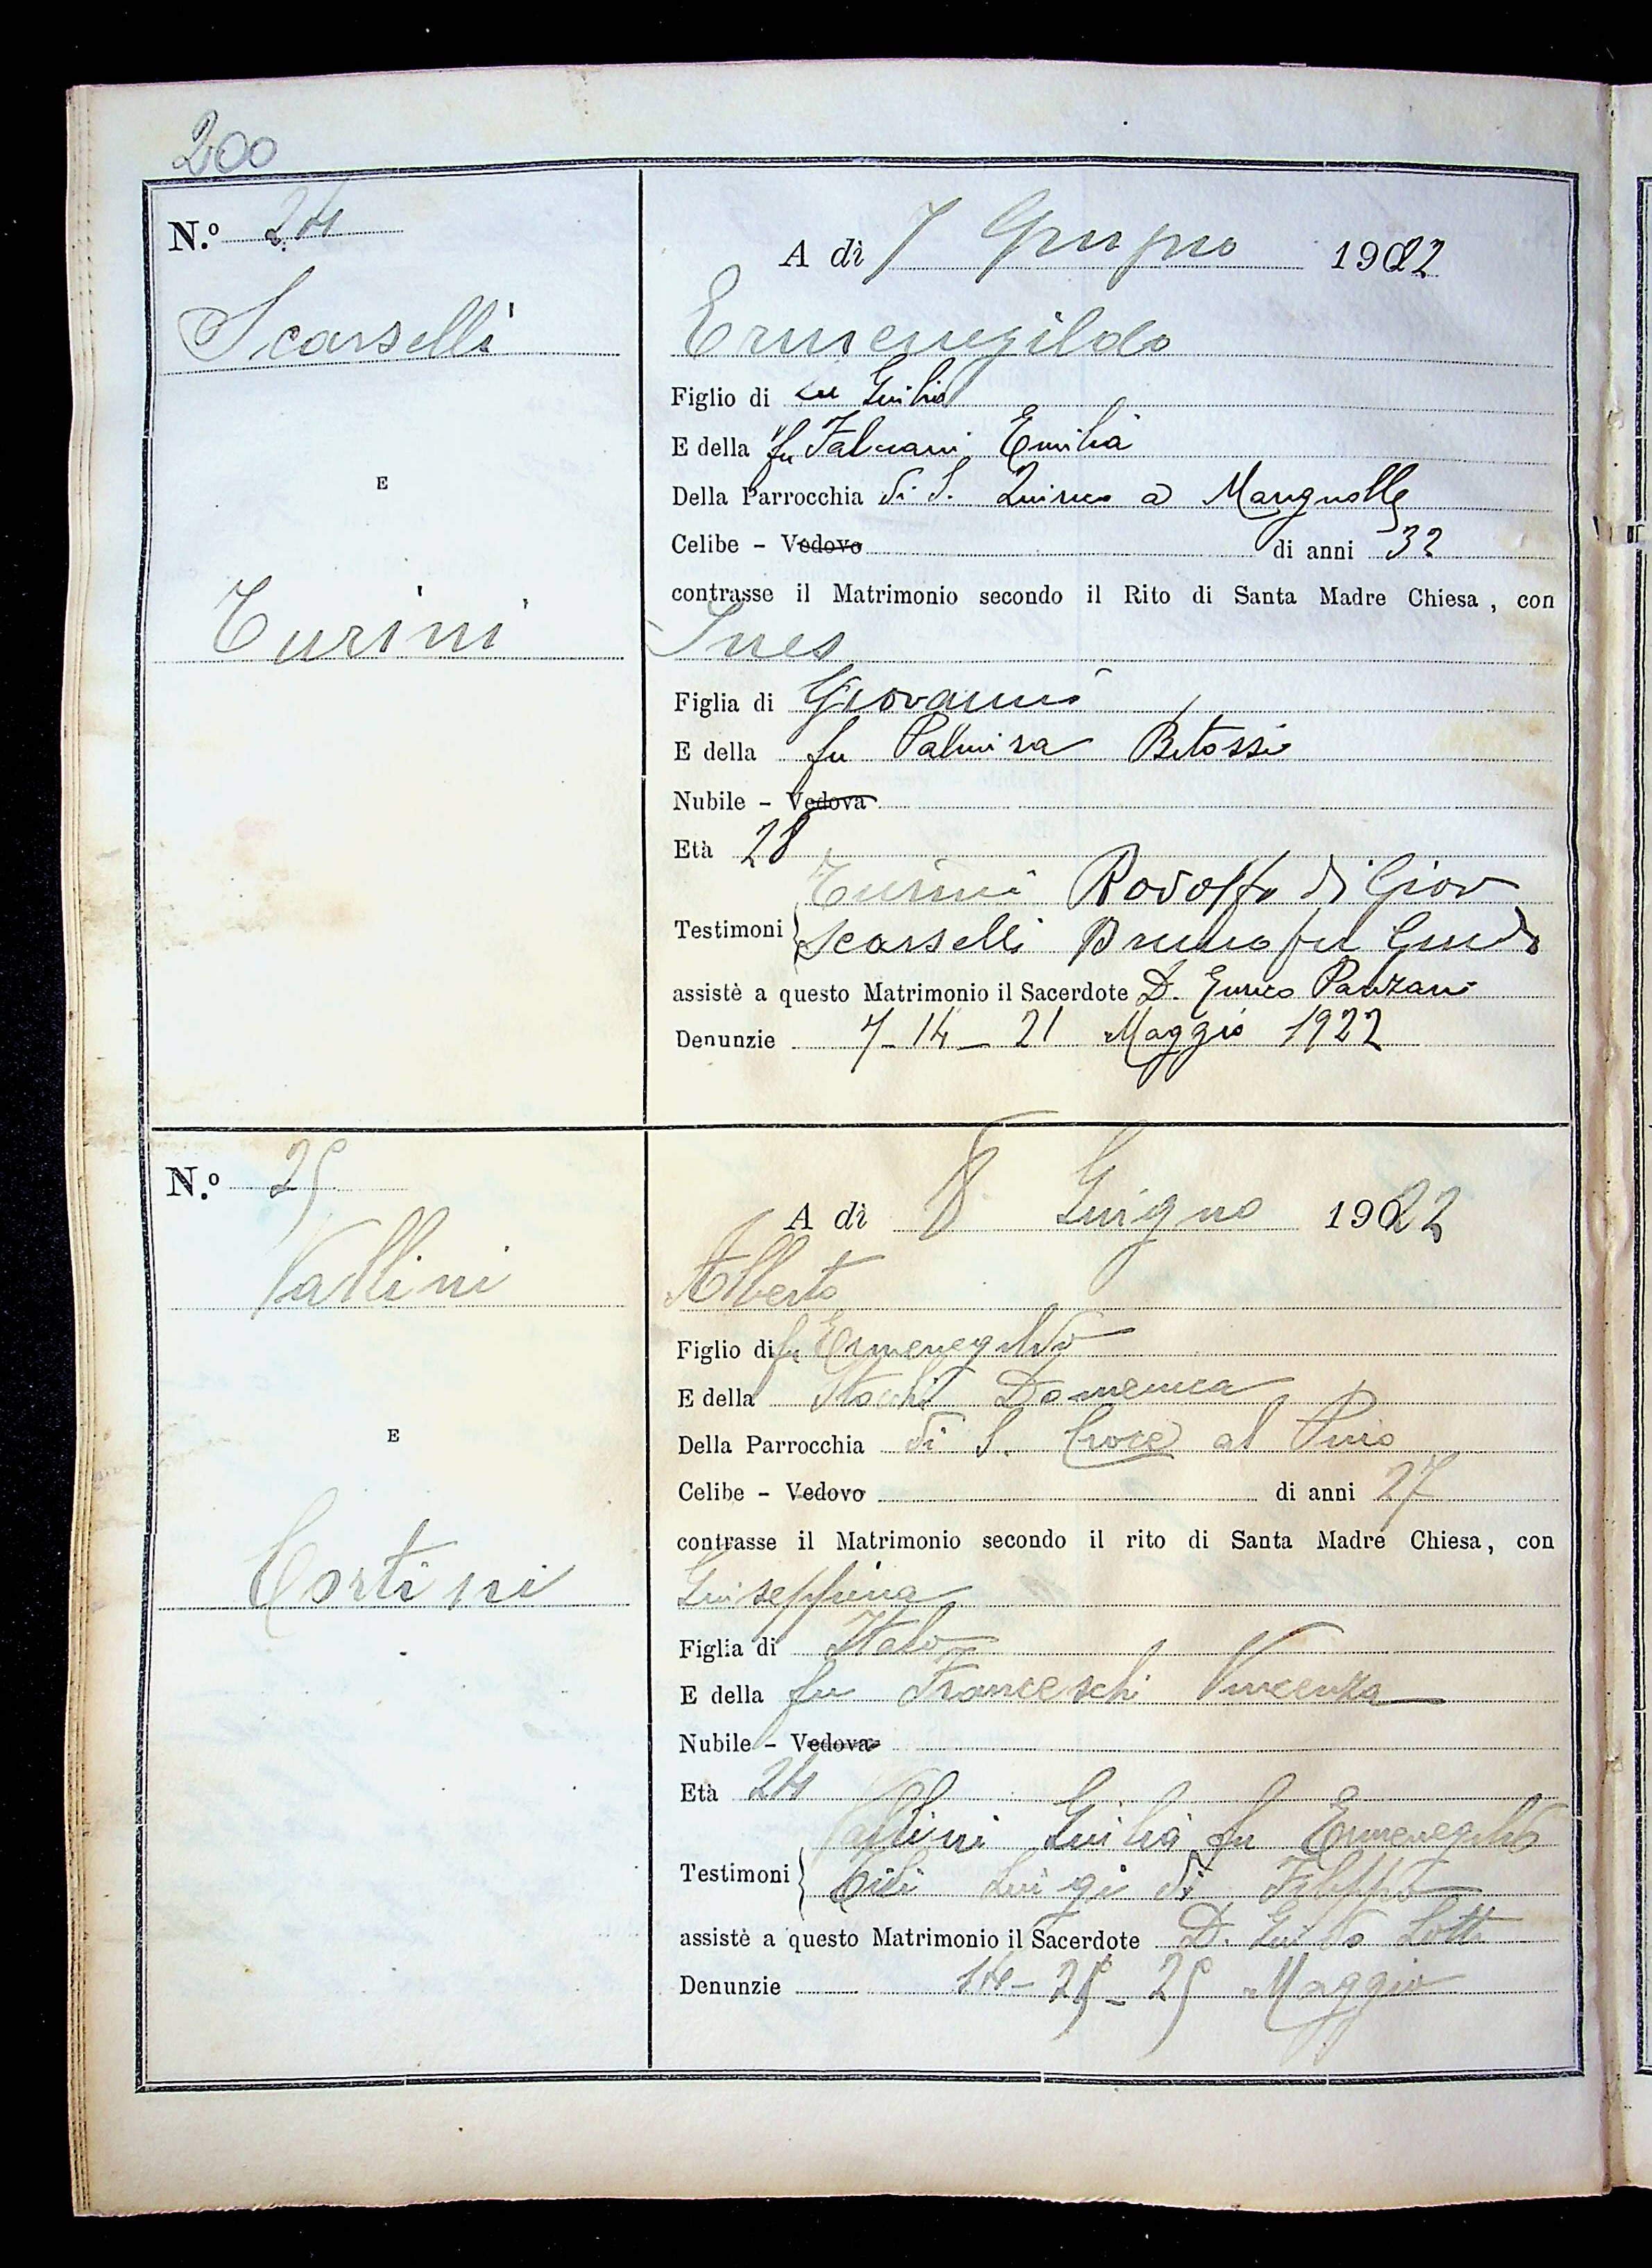 200
N.º 24
A dì 7 Giugno 1922
Scarselli
Ermenegildo
Figlio di fu Giulio
E della fu Emilia
E
Della Parrocchia di S. Quirico a Marignolle
Celibe - Vedovo di anni 32
contrasse il Matrimonio secondo il Rito di Santa Madre Chiesa, con
Turini
Ines
Figlia di Giovanni
E della fu Palmira Bitossi
Nubile - Vedova
Età 28
Turini Rodolfo di Giov
Testimoni Scarselli Bruno fu Guido
assistè a questo Matrimonio il Sacerdote D. Enrico Panzani
Denunzie 7-14-21 Maggio 1922
N.º 25
A dì 8 Giugno 1922
Vallini
Alberto
Figlio di fu Ermenegildo
E della Domenica
E
Della Parrocchia di S. Croce al Pino
Celibe - Vedovo di anni 27
contrasse il Matrimonio secondo il rito di Santa Madre Chiesa, con
Cortini
Giuseppina
Figlia di Italo
E della fu Franceschi Vincenza
Nubile - Vedova
Età 24
Vallini Giulio fu Ermenegildo
Testimoni Luigi di Filippo
assistè a questo Matrimonio il Sacerdote D. Guido Lotti
Denunzie 25 Maggio